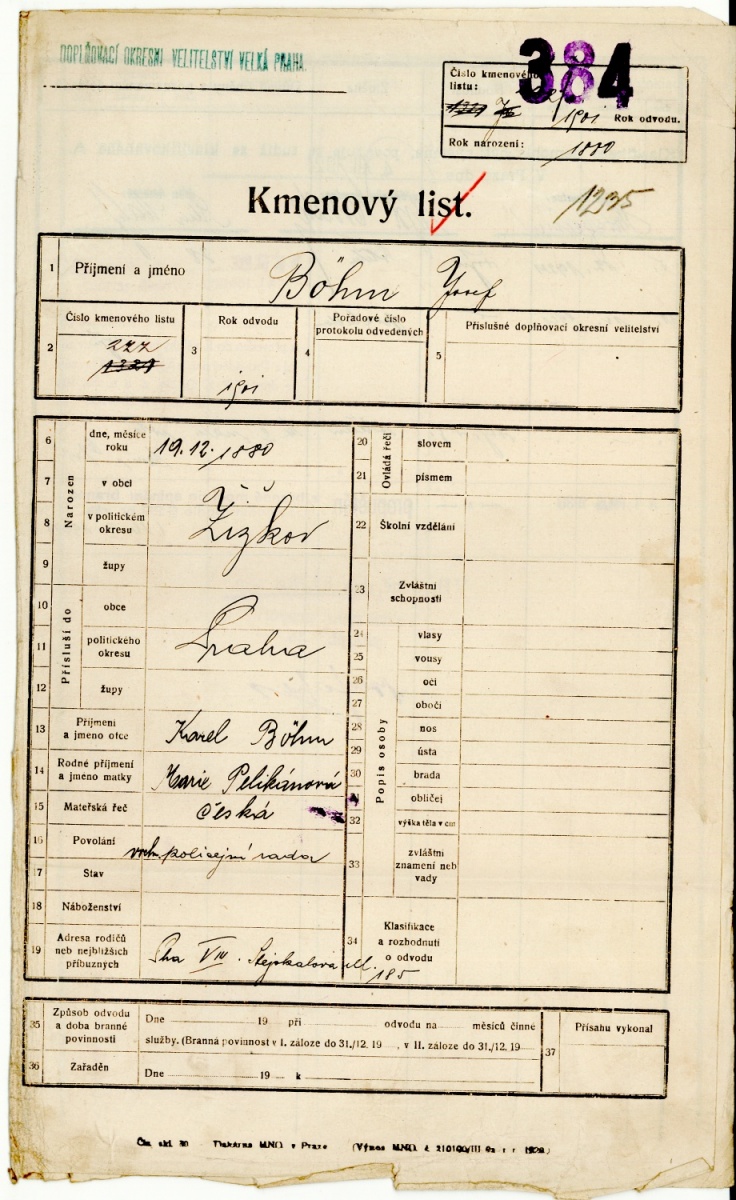 DOPLŇOVACÍ OKRESNÍ VELITELSTVÍ VELKÁ PRAHA.
384
Číslo kmenového listu:
1901 Rok odvodu.
Rok narození: 1880
Kmenový list.
1235
1 Příjmení a jméno Böhm Josef
2 Číslo kmenového listu 277 1321
3 Rok odvodu 1901
4 Pořadové číslo protokolu odvedených
5 Příslušné doplňovací okresní velitelství
Narozen
6 dne, měsíce roku 19.12.1880
7 v obci
8 v politickém okresu Žižkov
9 župy
Přísluší do
10 obce
11 politického okresu Praha
12 župy
13 Příjmení a jmeno otce Karel Böhm
14 Rodné příjmení a jméno matky Marie Pelikánová
15 Mateřská řeč česká
16 Povolání vrch. policejní rada
17 Stav
18 Náboženství
19 Adresa rodičů neb nejbližších příbuzných Pha VIII. Stejskalova ul. 185
Ovládá řeči
20 slovem
21 písmem
22 Školní vzdělání
23 Zvláštní schopnosti
Popis osoby
24 vlasy
25 vousy
26 oči
27 obočí
28 nos
29 ústa
30 brada
31 obličej
32 výška těla v cm
33 zvláštní znamení neb vady
34 Klasifikace a rozhodnutí o odvodu
35 Způsob odvodu a doba branné povinnosti
Dne 19 při odvodu na měsíců činné
služby. (Branná povinnost v I. záloze do 31./12. 19 , v II. záloze do 31./12. 19
36 Zařaděn
Dne 19 k
37 Přísahu vykonal
Čís. skl. 30 Tiskárna MNO. v Praze (Výnos MNO. č. 210100/III